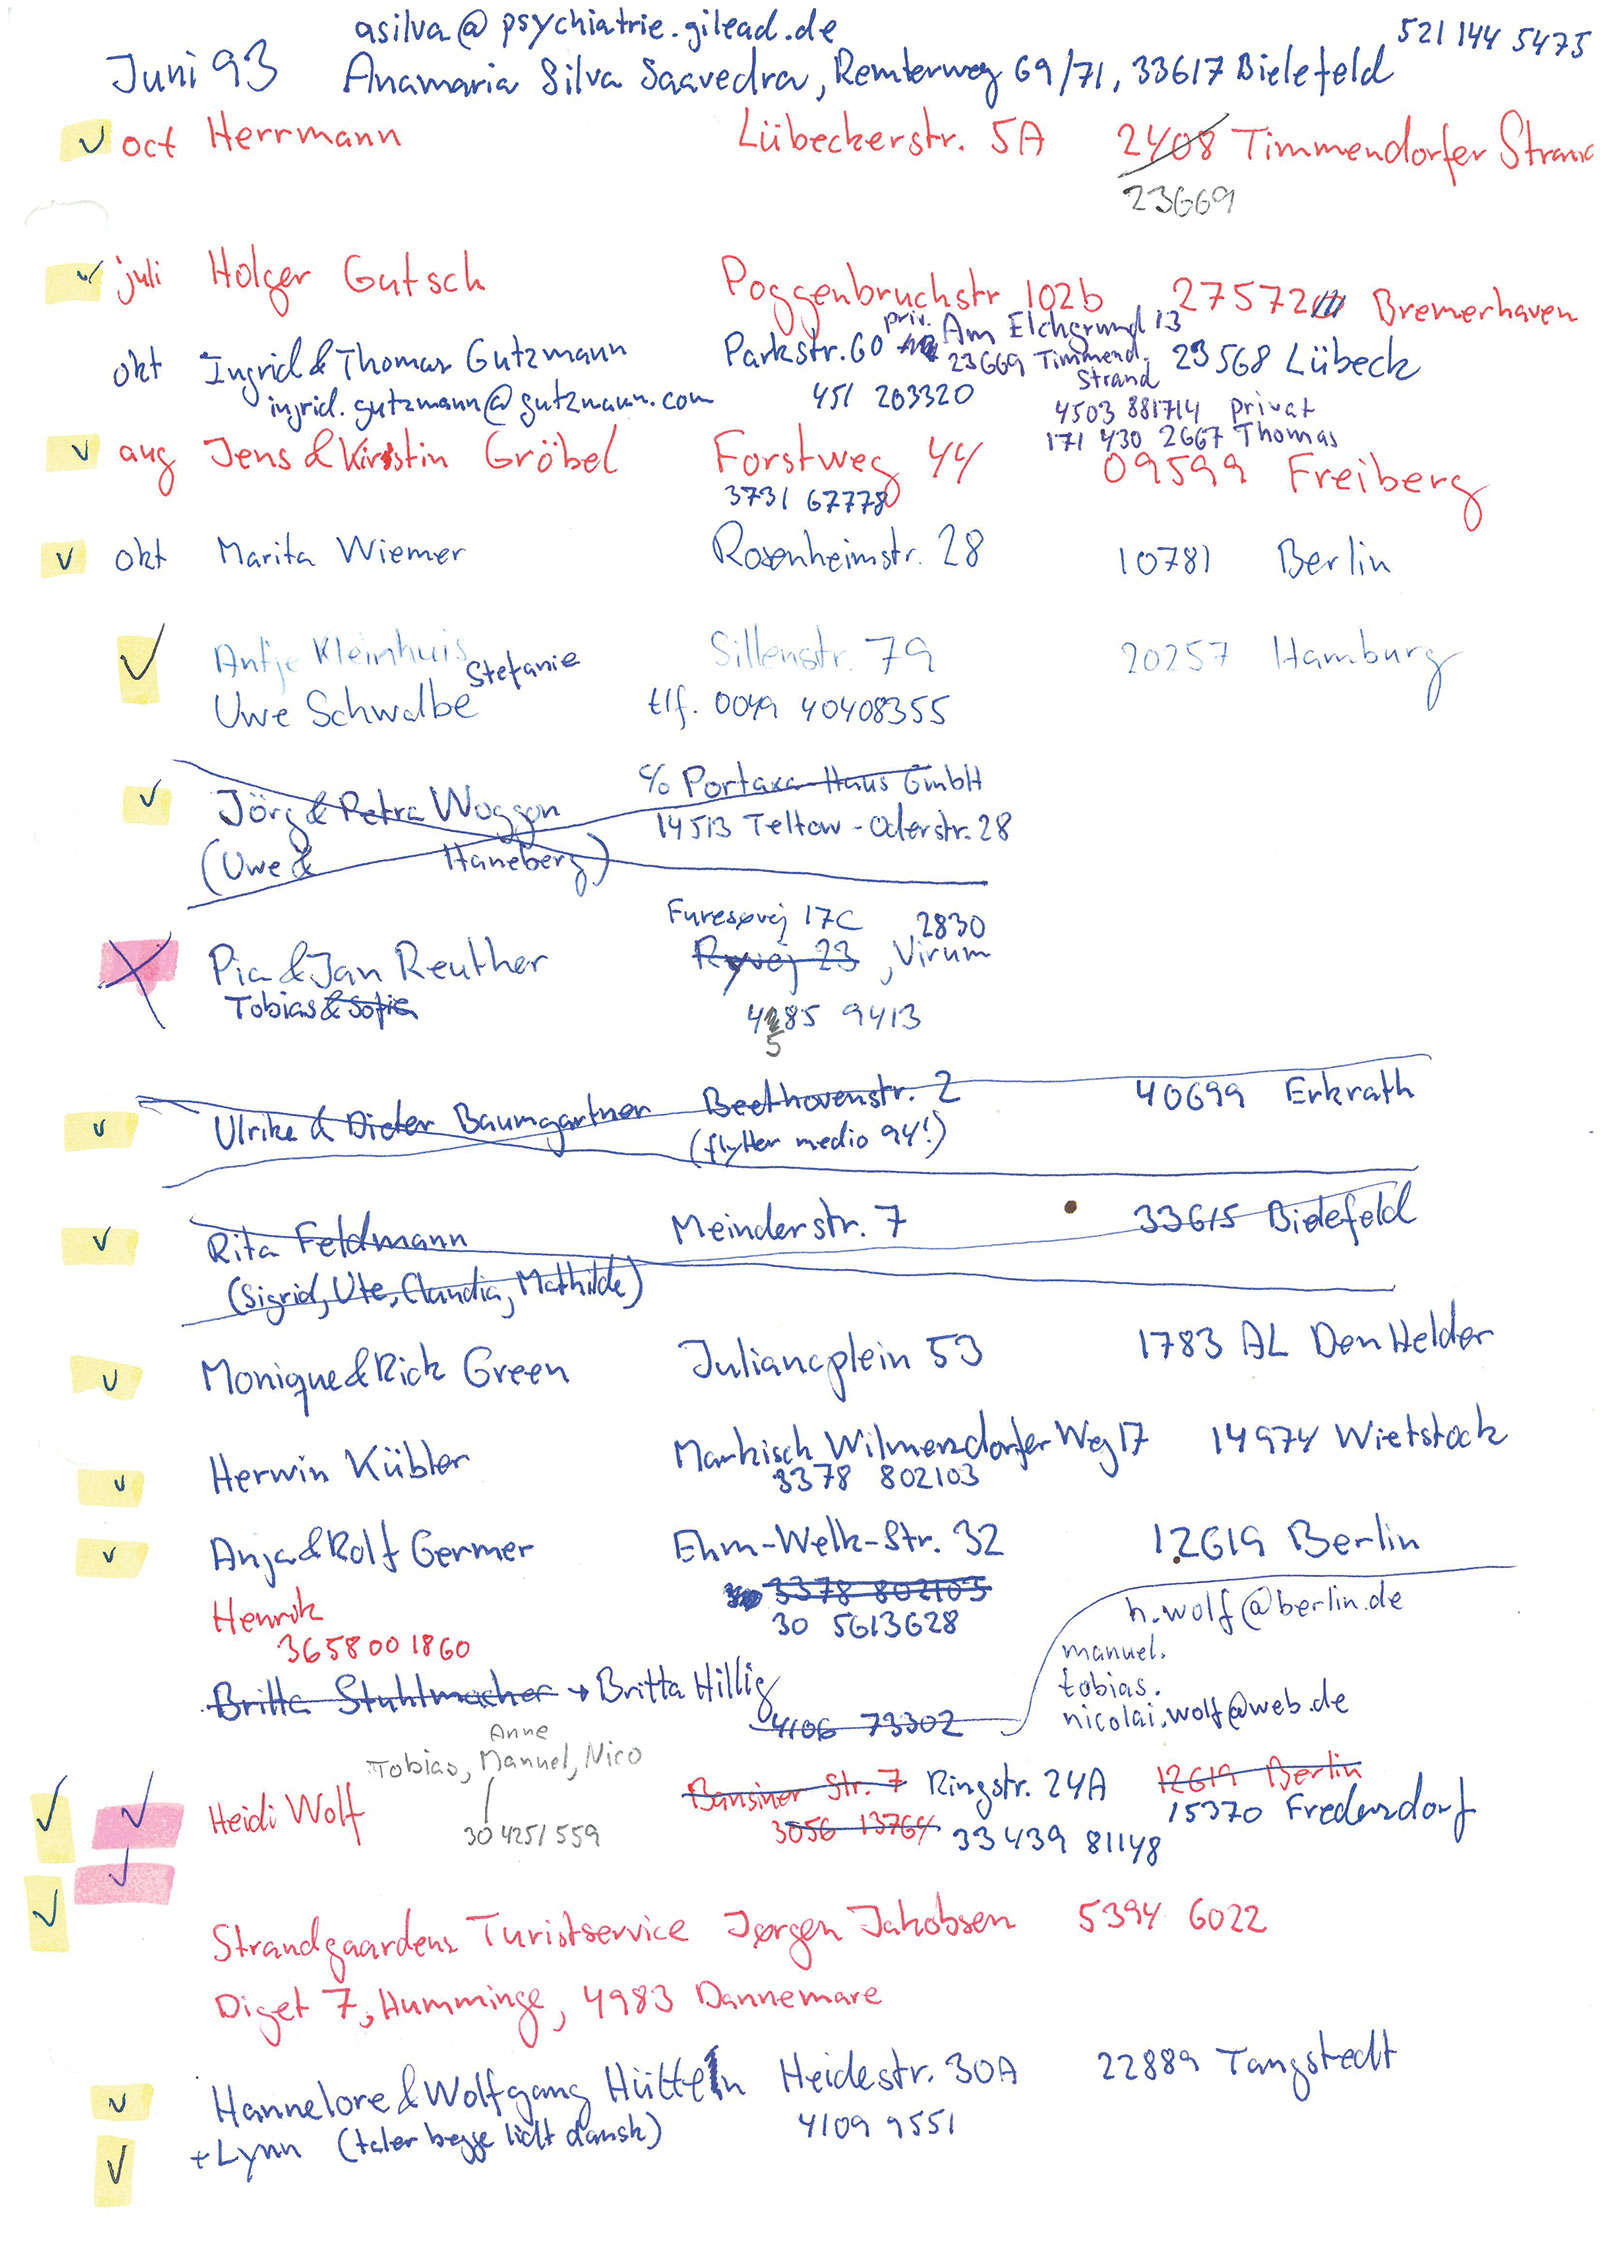 asilva@psychiatrie.gilead.de 521 144 5475
Juni 93 Anamaria Silva Saavedra, Remterweg 69/71, 33617 Bielefeld
oct Herrmann Lübeckerstr. 5A 2408 Timmendorfer Strand
23669
juli Holger Gutsch Poggenbruchstr 102b 27572 Bremerhaven
okt Ingrid & Thomas Gutzmann Parkstr. 60 priv. Am Elchgrund 13 23568 Lübeck
23669 Timmend. Strand
ingrid.gutzmann@gutzmann.com 451 203320 4503 881714 privat
171 430 2667 Thomas
aug Jens & Kirstin Gröbel Forstweg 44 09599 Freiberg
3731 67778
okt Marita Wiemer Rosenheimstr. 28 10781 Berlin
Antje Kleinhuis Sillenstr. 79 20257 Hamburg
Stefanie
Uwe Schwalbe tlf. 0049 40408355
Jörg & Petra Woggon c/o Portaxa Haus GmbH
14513 Teltow - Oderstr. 28
(Uwe & Haneberg)
Furesøvej 17C 2830
Pia & Jan Reuther Ryvej 23, Virum
Tobias & Sofie 4 85 9413
5
Ulrike & Dieter Baumgartner Beethovenstr. 2 40699 Erkrath
(flytter medio 94!)
Rita Feldmann Meinderstr. 7 33615 Bielefeld
(Sigrid, Ute, Claudia, Mathilde)
Monique & Rick Green Julianaplein 53 1783 AL Den Helder
Herwin Kübler Markisch Wilmersdorfer Weg 17 14974 Wietstock
3378 802103
Anja & Rolf Germer Ehm-Welk-Str. 32 12619 Berlin
3378 802103
Henrik 30 5613628
3658001860
h.wolf@berlin.de
manuel.
tobias.
nicolai.wolf@web.de
Britta Stuhlmacher → Britta Hillig
4106 73302
Anne
Tobias, Manuel, Nico
Heidi Wolf Bansiner Str. 7 Ringstr. 24A 12619 Berlin
15370 Fredersdorf
30 4251 559 3056 13764 33439 81148
Strandgaardens Turistservice Jørgen Jakobsen 5394 6022
Diget 7, Humminge, 4983 Dannemare
Hannelore & Wolfgang Hütteln Heidestr. 30A 22889 Tangstedt
+ Lynn (taler begge lidt dansk) 4109 9551